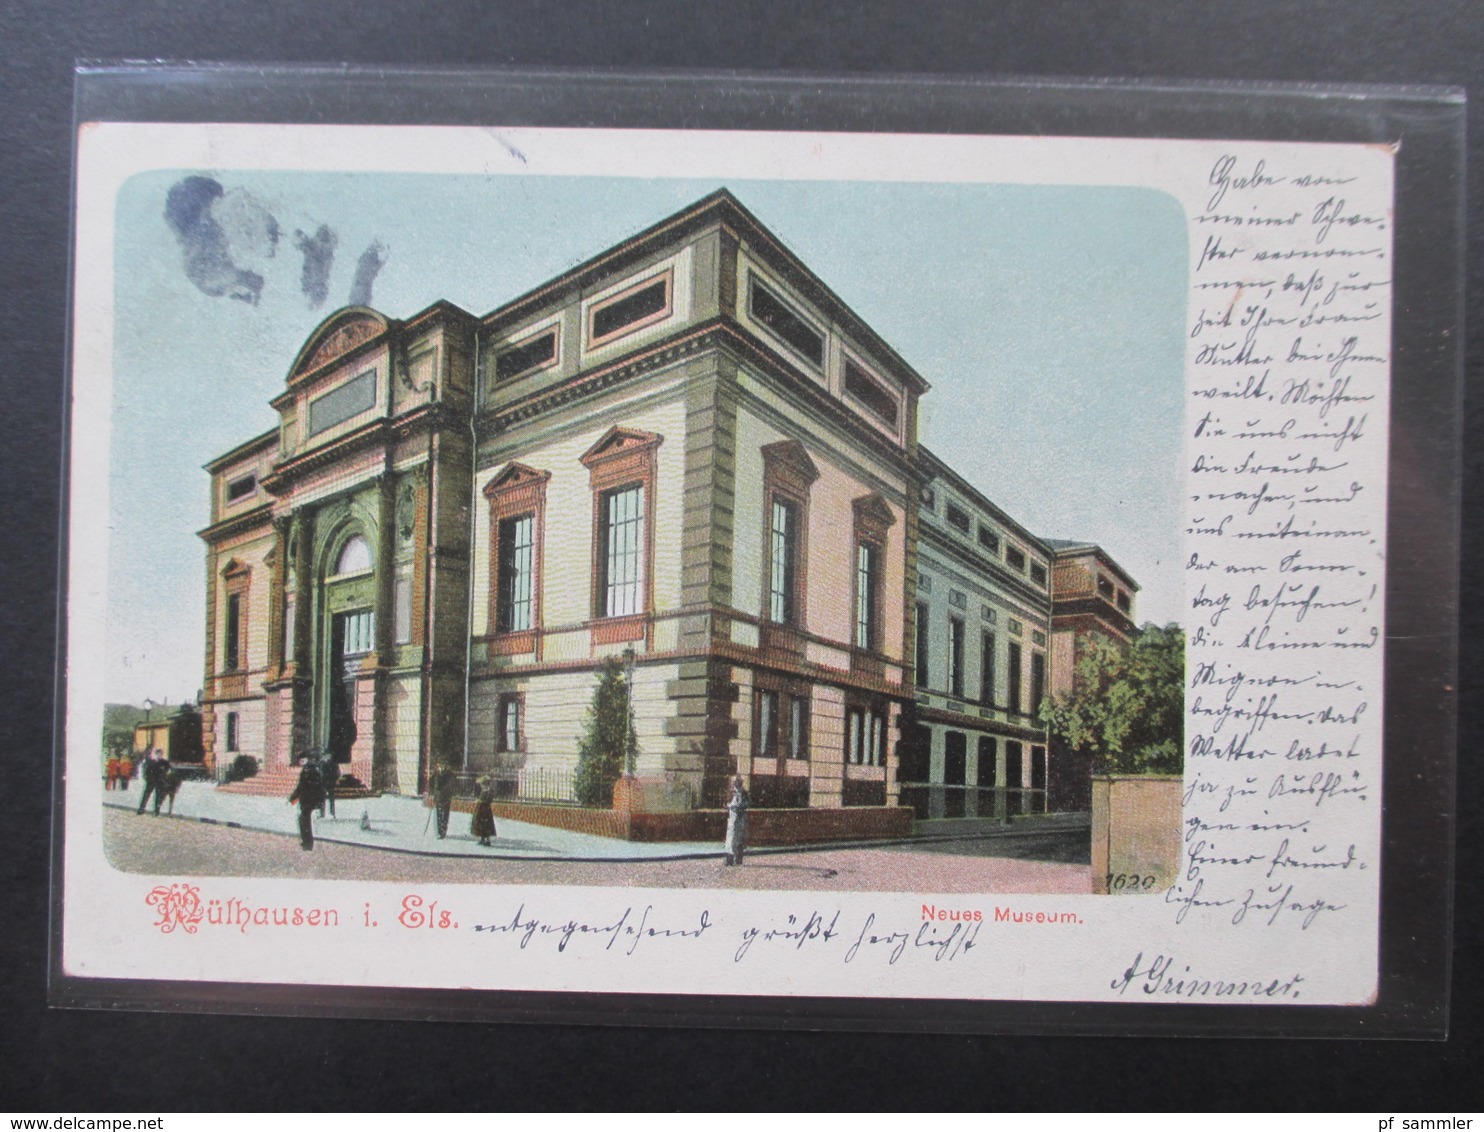 Habe von
meiner Schwe-
ster vernom-
men, daß zur
Zeit Ihre Frau
Mutter bei Ihnen
weilt. Möchten
Sie uns nicht
die Freude
machen, und
uns miteinan-
der am Sonn-
tag besuchen!
die Kleine und
Mignon in-
begriffen. Das
Wetter ladet
ja zu Ausflü-
gen ein.
Einer freund-
lichen Zusage
1620
Mülhausen i. Els.
entgegensehend grüßt herzlichst
Neues Museum.
A Grimmer.
pf_sammler
delcampe.net